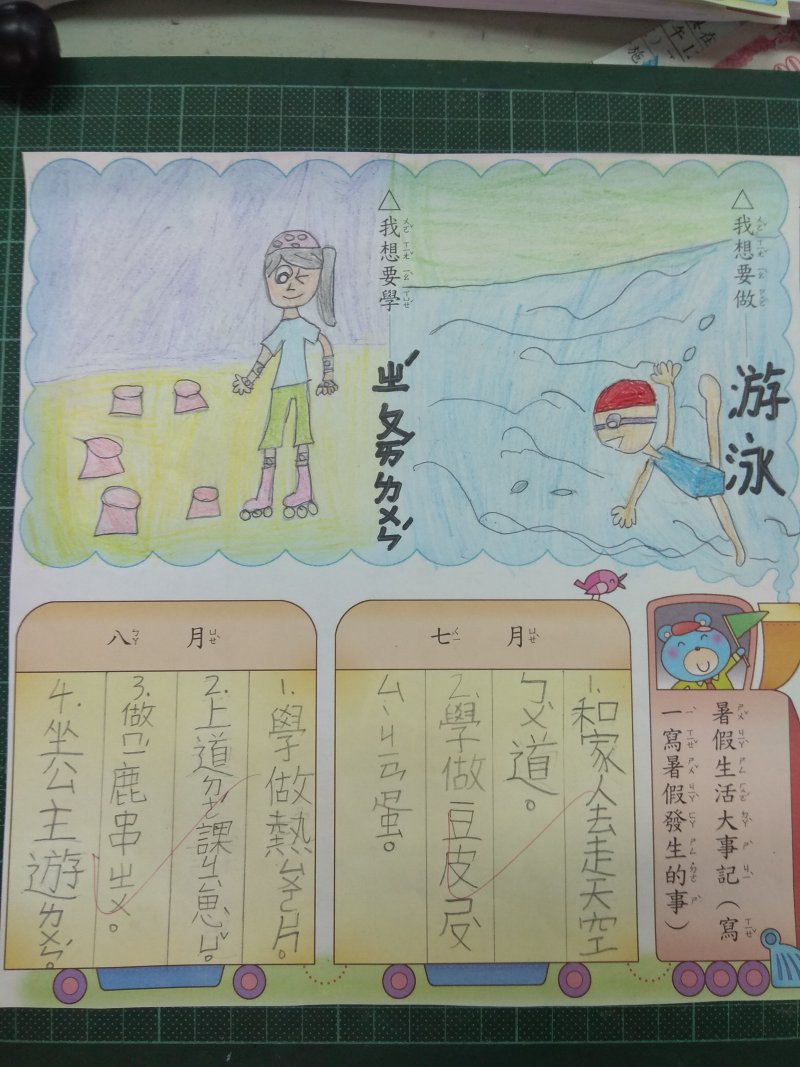 △我想要做
游泳
△我想要學
ㄓˊㄆㄞˊㄌㄨㄣˊ
暑假生活大事記（寫
一寫暑假發生的事）
七月
1.和家人去走天空
ㄅㄨˋ道。
2.學做豆皮
蛋。
八月
1.學做熱
2.上道ㄉㄜˊ課
3.做ㄇㄧˊ鹿串ㄓㄨ。
4.坐公主遊ㄌㄨㄣˊ。